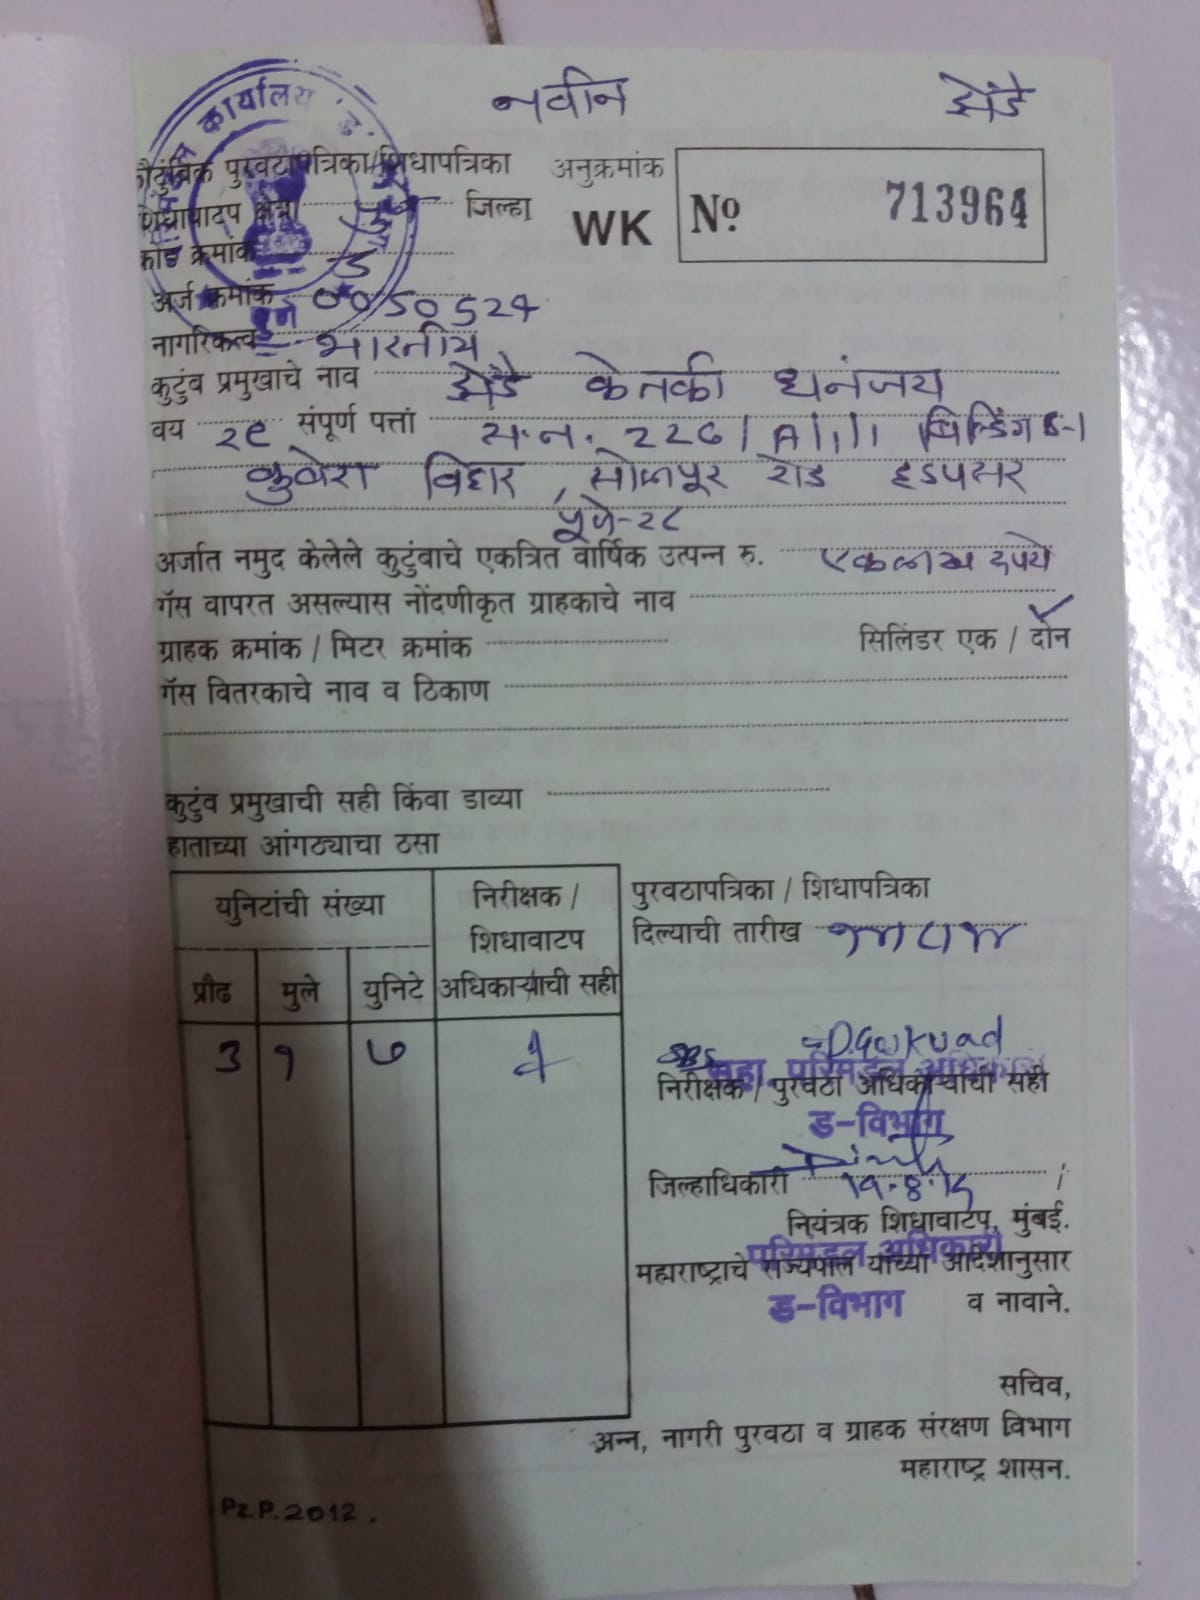 नवीन झेंडे
कार्यालय
कौटुंबिक पुरवठापत्रिका/शिधापत्रिका अनुक्रमांक
शिधावाटप क्षेत्र पुणे जिल्हा WK No 713964
कार्ड क्रमांक ड
अर्ज क्रमांक 0050524
नागरिकत्व भारतीय
कुटुंब प्रमुखाचे नाव झेंडे केतकी धनंजय
वय २९ संपूर्ण पत्तां स.न. 226/A/1/1 बिल्डिंग B-1
कुबेरा विहार, सोलापूर रोड हडपसर
पूणे-२८
अर्जात नमुद केलेले कुटुंबाचे एकत्रित वार्षिक उत्पन्न रु. एकलाख रुपये
गॅस वापरत असल्यास नोंदणीकृत ग्राहकाचे नाव
ग्राहक क्रमांक / मिटर क्रमांक सिलिंडर एक / दोन
गॅस वितरकाचे नाव व ठिकाण
कुटुंव प्रमुखाची सही किंवा डाव्या
हाताच्या आंगठ्याचा ठसा
युनिटांची संख्या निरीक्षक / शिधावाटप अधिकाऱ्याची सही
प्रौढ मुले युनिटे
3 १ ७
पुरवठापत्रिका / शिधापत्रिका
दिल्याची तारीख
सहा. परिमंडल अधिकारी
निरीक्षक / पुरवठा अधिकाऱ्याची सही
ड-विभाग
जिल्हाधिकारी
नियंत्रक शिधावाटप, मुंबई.
परिमंडल अधिकारी
महाराष्ट्राचे राज्यपाल यांच्या आदेशानुसार
ड-विभाग व नावाने.
सचिव,
अन्न, नागरी पुरवठा व ग्राहक संरक्षण विभाग
महाराष्ट्र शासन.
PZP.2012.